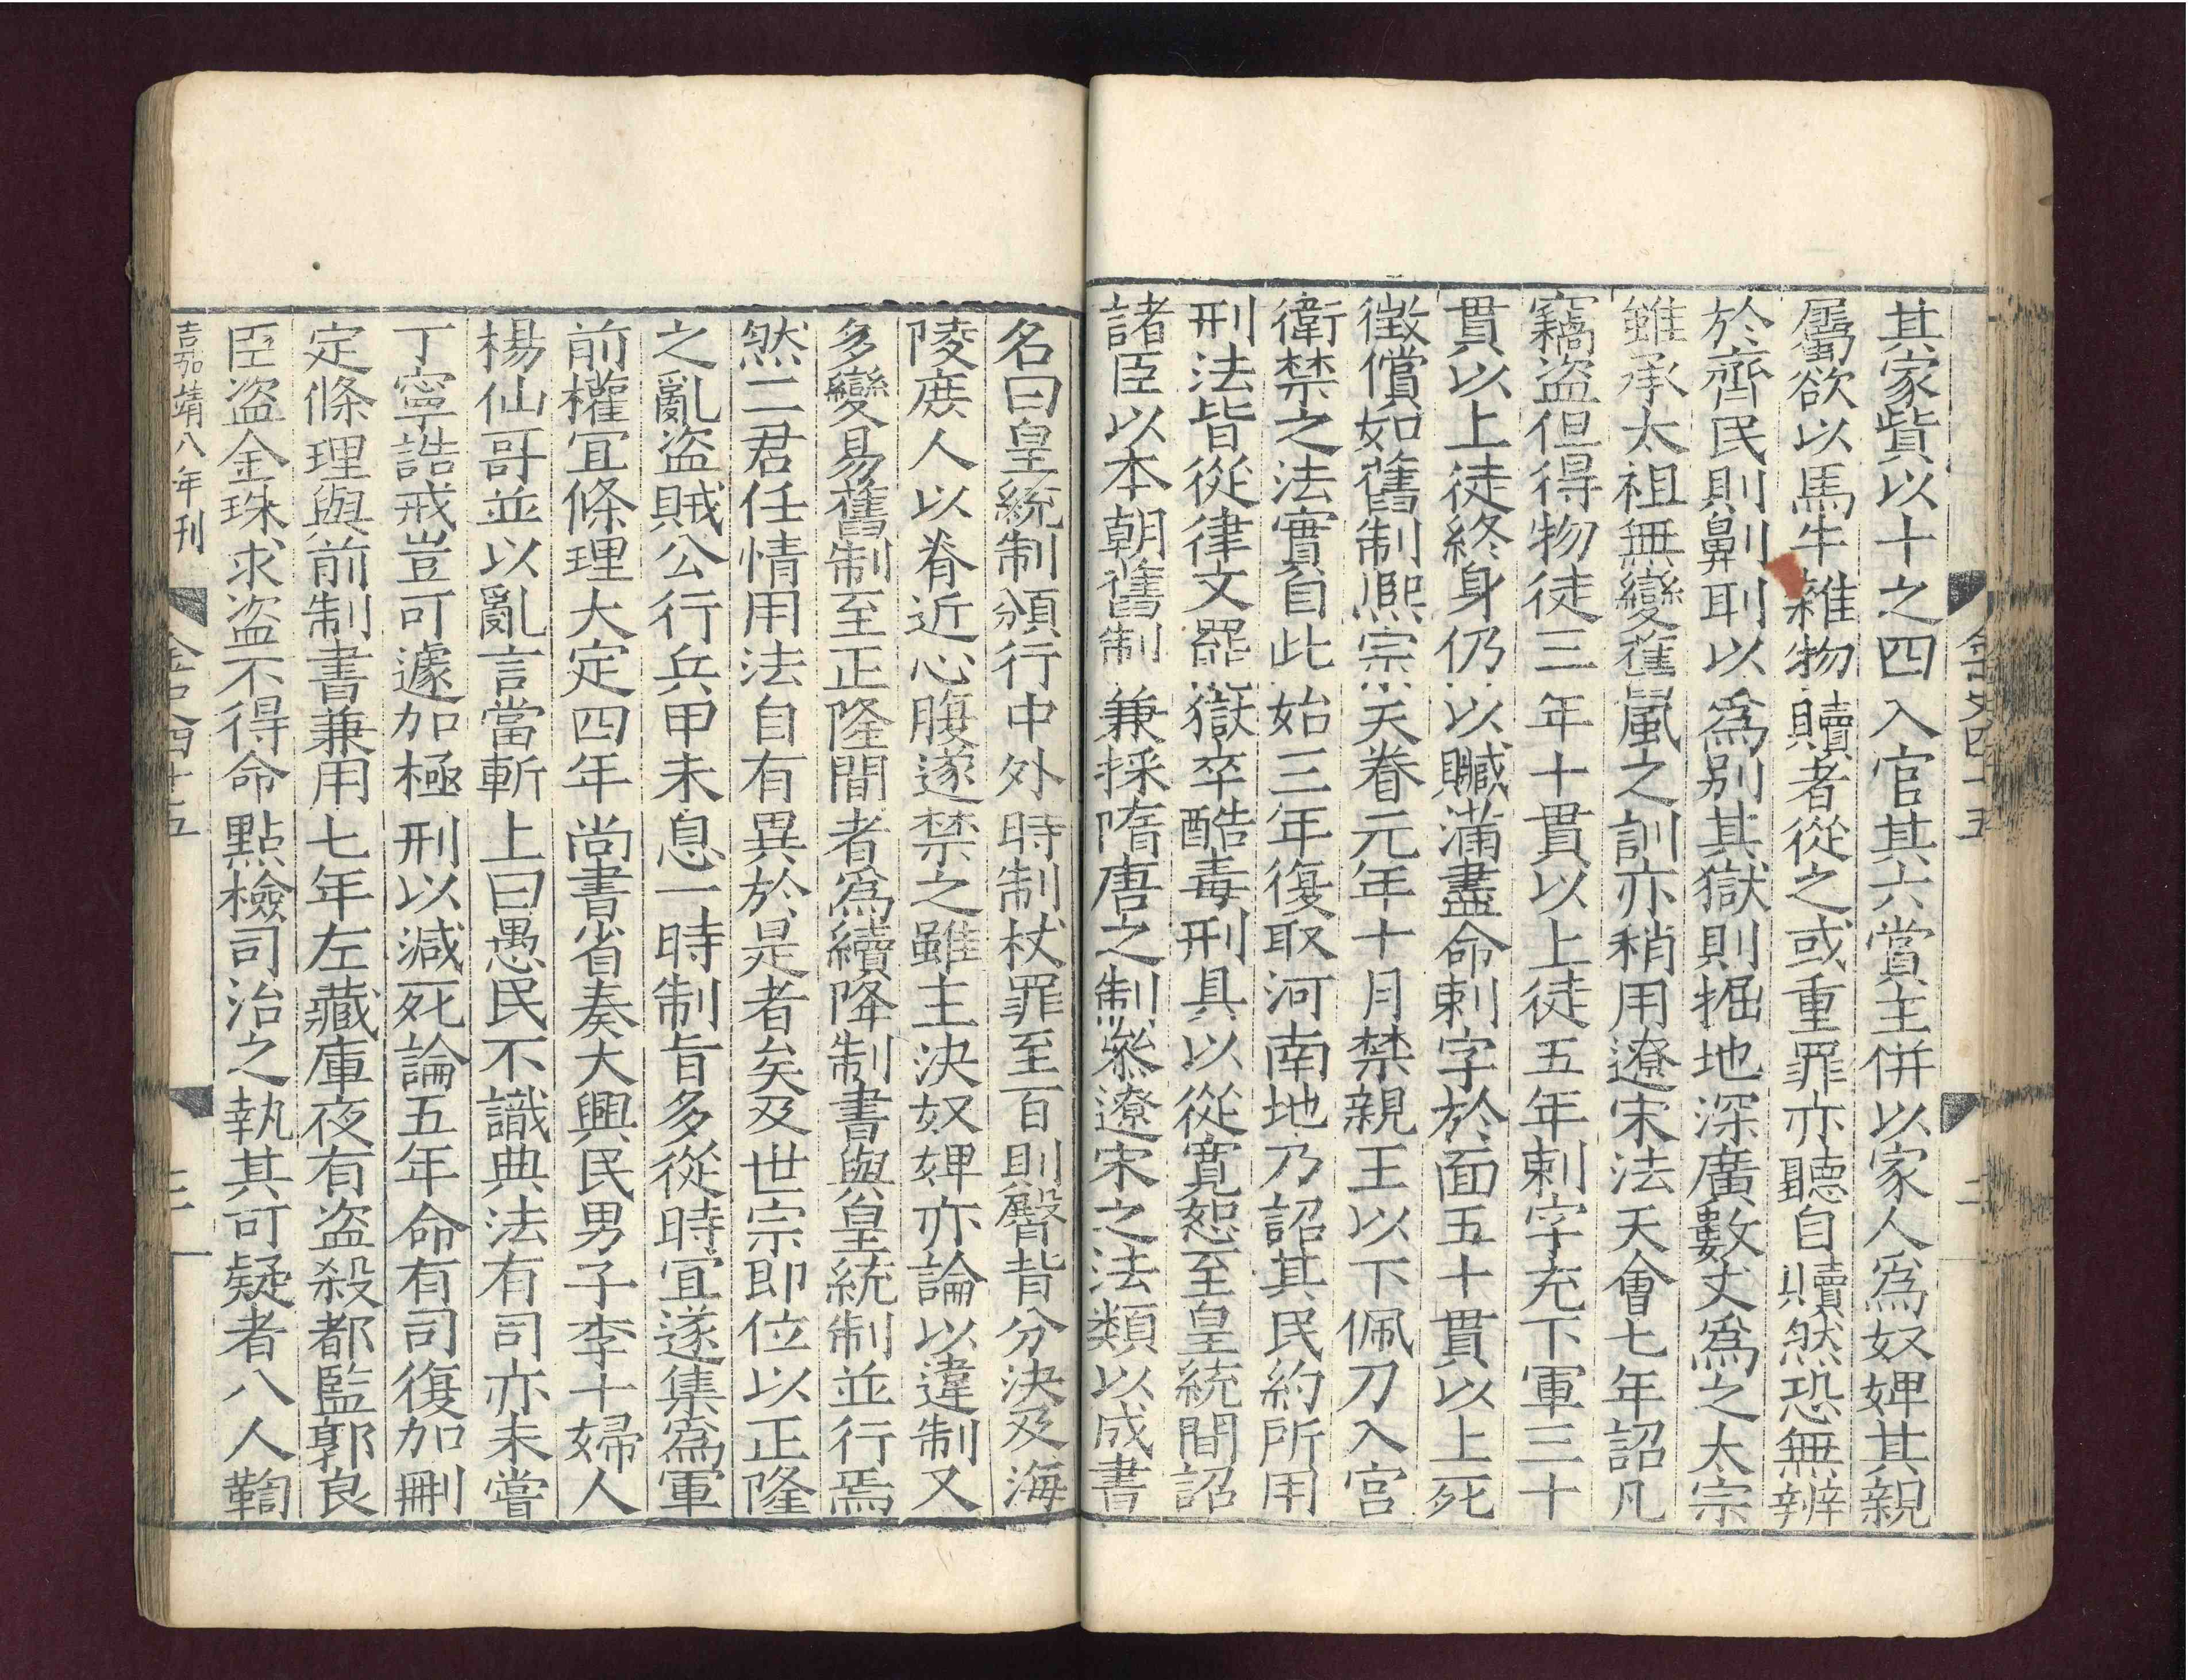 金史四十五
二
其家貲以十之四入官其六賞主併以家人爲奴婢其親
屬欲以馬牛雜物贖者從之或重罪亦聽自贖然恐無辨
於齊民則劓刵以爲别其獄則掘地深廣數丈爲之太宗
雖承太祖無變舊風之訓亦稍用遼宋法天會七年詔凡
竊盜但得物徒三年十貫以上徒五年刺字充下軍三十
貫以上徒終身仍以贓滿盡命刺字於面五十貫以上死
徵償如舊制熙宗天眷元年十月禁親王以下佩刀入宫
衛禁之法實自此始三年復取河南地乃詔其民約所用
刑法皆從律文罷獄卒酷毒刑具以從寬恕至皇統間詔
諸臣以本朝舊制兼採隋唐之制叅遼宋之法類以成書
名曰皇統制頒行中外時制杖罪至百則臀背分決及海
陵庶人以脊近心腹遂禁之雖主決奴婢亦論以違制又
多變易舊制至正隆間者爲續降制書與皇統制並行焉
然二君任情用法自有異於是者矣及世宗即位以正隆
之亂盜賊公行兵甲未息一時制旨多從時宜遂集爲軍
前權宜條理大定四年尚書省奏大興民男子李十婦人
楊仙哥並以亂言當斬上曰愚民不識典法有司亦未嘗
丁寧誥戒豈可遽加極刑以減死論五年命有司復加刪
定條理與前制書兼用七年左藏庫夜有盜殺都監郭良
臣盜金珠求盜不得命點檢司治之執其可疑者八人鞫
嘉靖八年刊
金史四十五
三